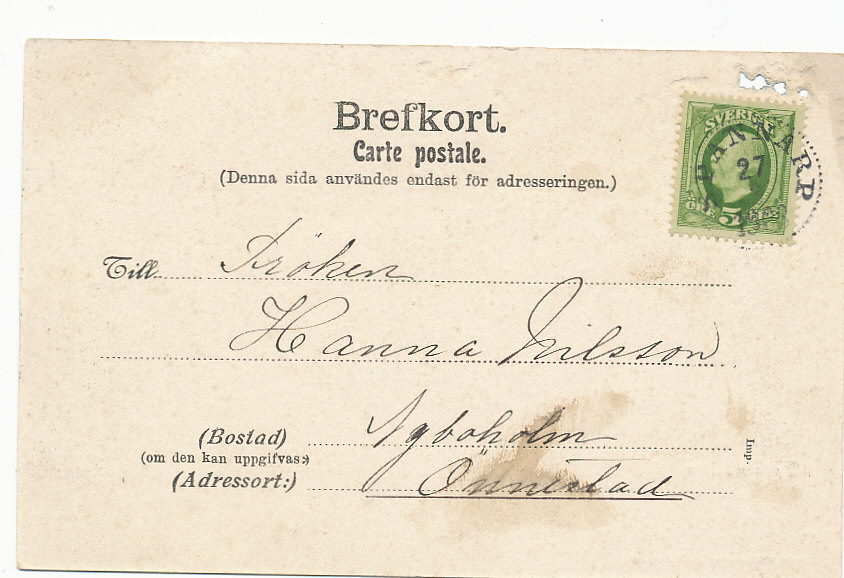 Brefkort.
Carte postale.
(Denna sida användes endast för adresseringen.)
SVERIGE
DANNARP
27
ÖRE 5 ÖRE
Till Fröken
Hanna Nilsson
(Bostad) Nyboholm
(om den kan uppgifvas:)
(Adressort:) Önnestad
Imp.